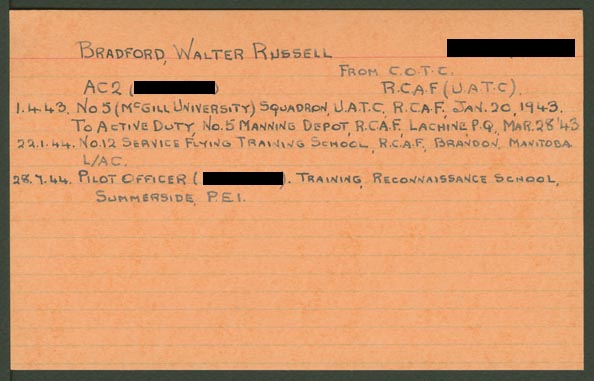 BRADFORD, WALTER RUSSELL
FROM C.O.T.C.
AC2 ( ) R.C.A.F. (U.A.T.C.)
1.4.43. NO 5 (MCGILL UNIVERSITY) SQUADRON, U.A.T.C., R.C.A.F., JAN. 20, 1943.
TO ACTIVE DUTY, NO. 5 MANNING DEPOT, R.C.A.F. LACHINE P.Q., MAR. 28 '43
22.1.44. NO. 12 SERVICE FLYING TRAINING SCHOOL, R.C.A.F., BRANDON, MANITOBA.
L/AC.
28.7.44. PILOT OFFICER ( ). TRAINING, RECONNAISSANCE SCHOOL,
SUMMERSIDE, P.E.I.